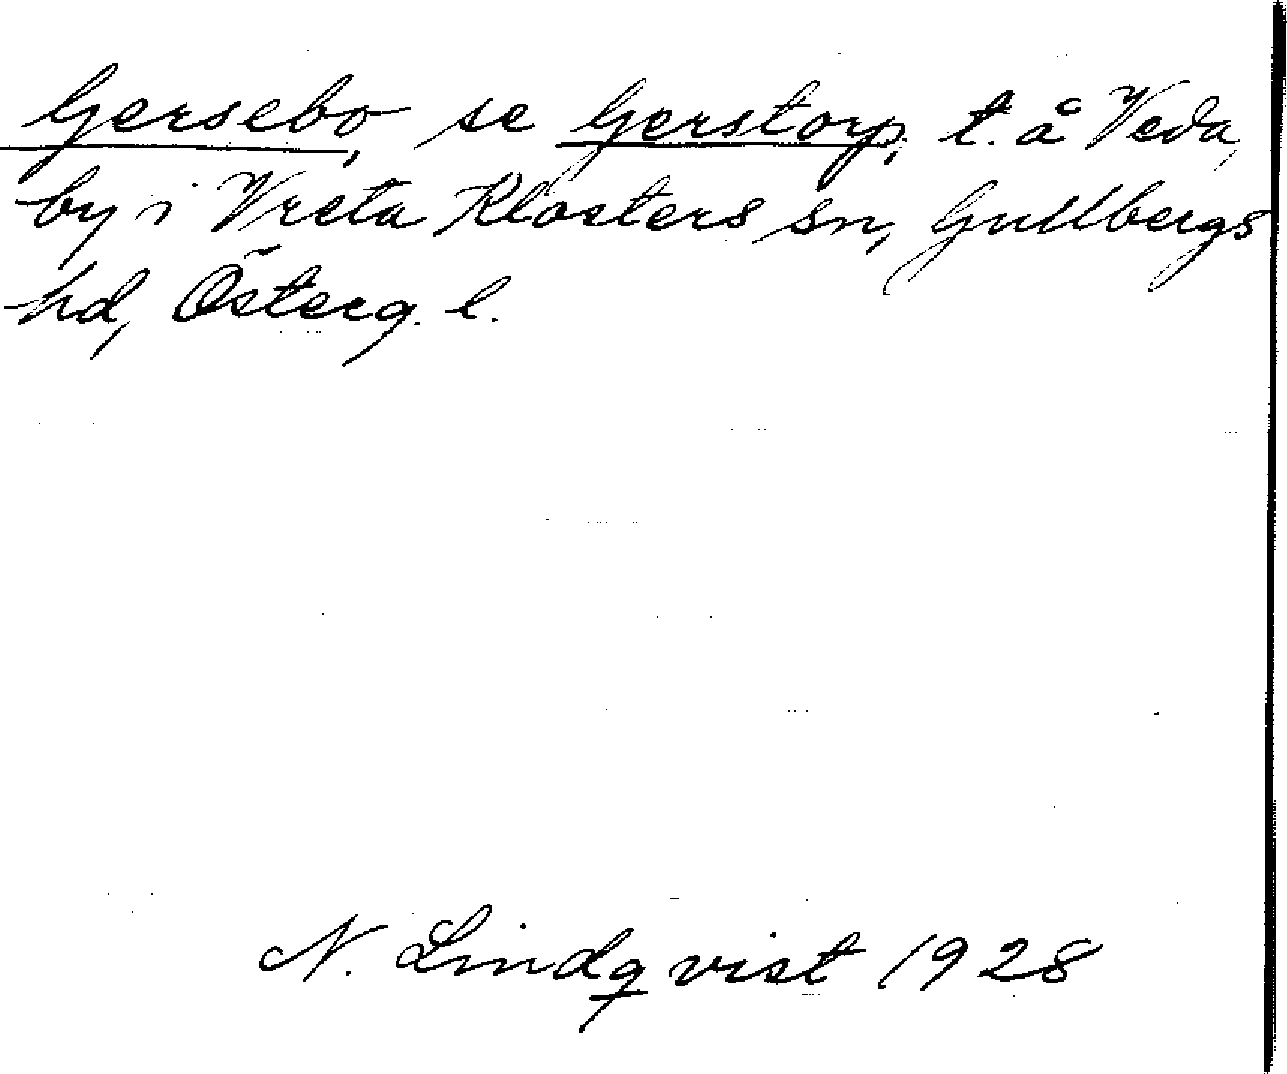 Gersebo, se Gerstorp, t. å Veda,
by i Vreta Klosters sn, Gullbergs
hd, Österg. l.
N. Lindqvist 1928